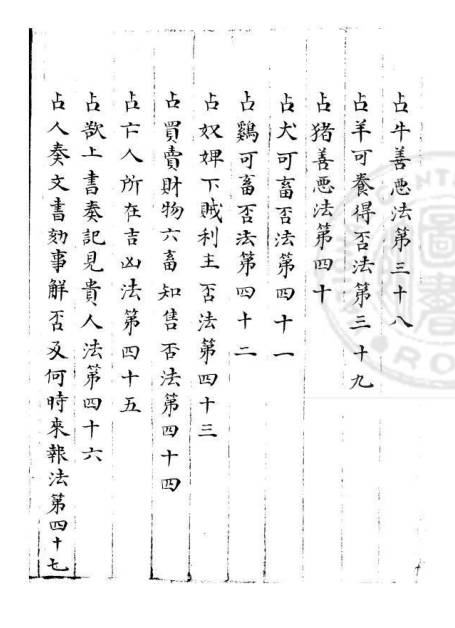 占牛善惡法第三十八
占羊可養得否法第三十九
占猪善惡法第四十
占犬可畜否法第四十一
占鷄可畜否法第四十二
占奴婢下賊利主否法第四十三
占買賣財物六畜知售否法第四十四
占亡人所在吉凶法第四十五
占欲上書奏記見貴人法第四十六
占人奏文書劾事解否及何時來報法第四十七
圖書